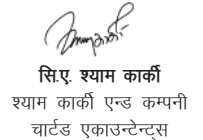 सि.ए. श्याम कार्की
श्याम कार्की एन्ड कम्पनी
चार्टड एकाउन्टेन्ट्स